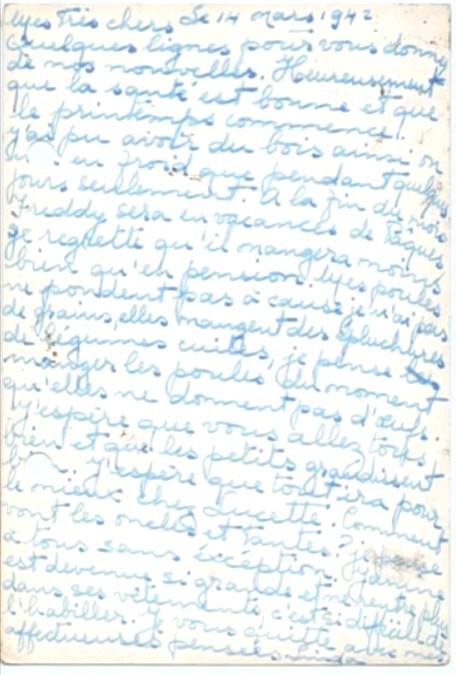 Mes très chers, Le 14 mars 1942
Quelques lignes pour vous donner
de nos nouvelles. Heureusement
que la santé est bonne et que
le printemps commence!
J'ai pu avoir du bois ainsi on
en froid que pendant quelques
jours seulement. A la fin du mois
Freddy sera en vacances de Pâques
je regrette qu'il mangera moins
bien qu'en pension. Mes poules
ne pondent pas à cause je n'ai pas
de grains, elles mangent des épluchures
de légumes cuites, je pense
manger les poules, du moment
qu'elles ne donnent pas d'œufs.
J'espère que vous allez tous
bien et que les petits grandissent
J'espère que tout ira pour
le mieux chez Lucette. Comment
vont les oncles et tantes?
à tous sans éxception. Jeanine
est devenue si grande et ne rentre plus
dans ses vêtements, c'est si difficile de
l'habiller. Je vous quitte avec mes
affectueuses pensées